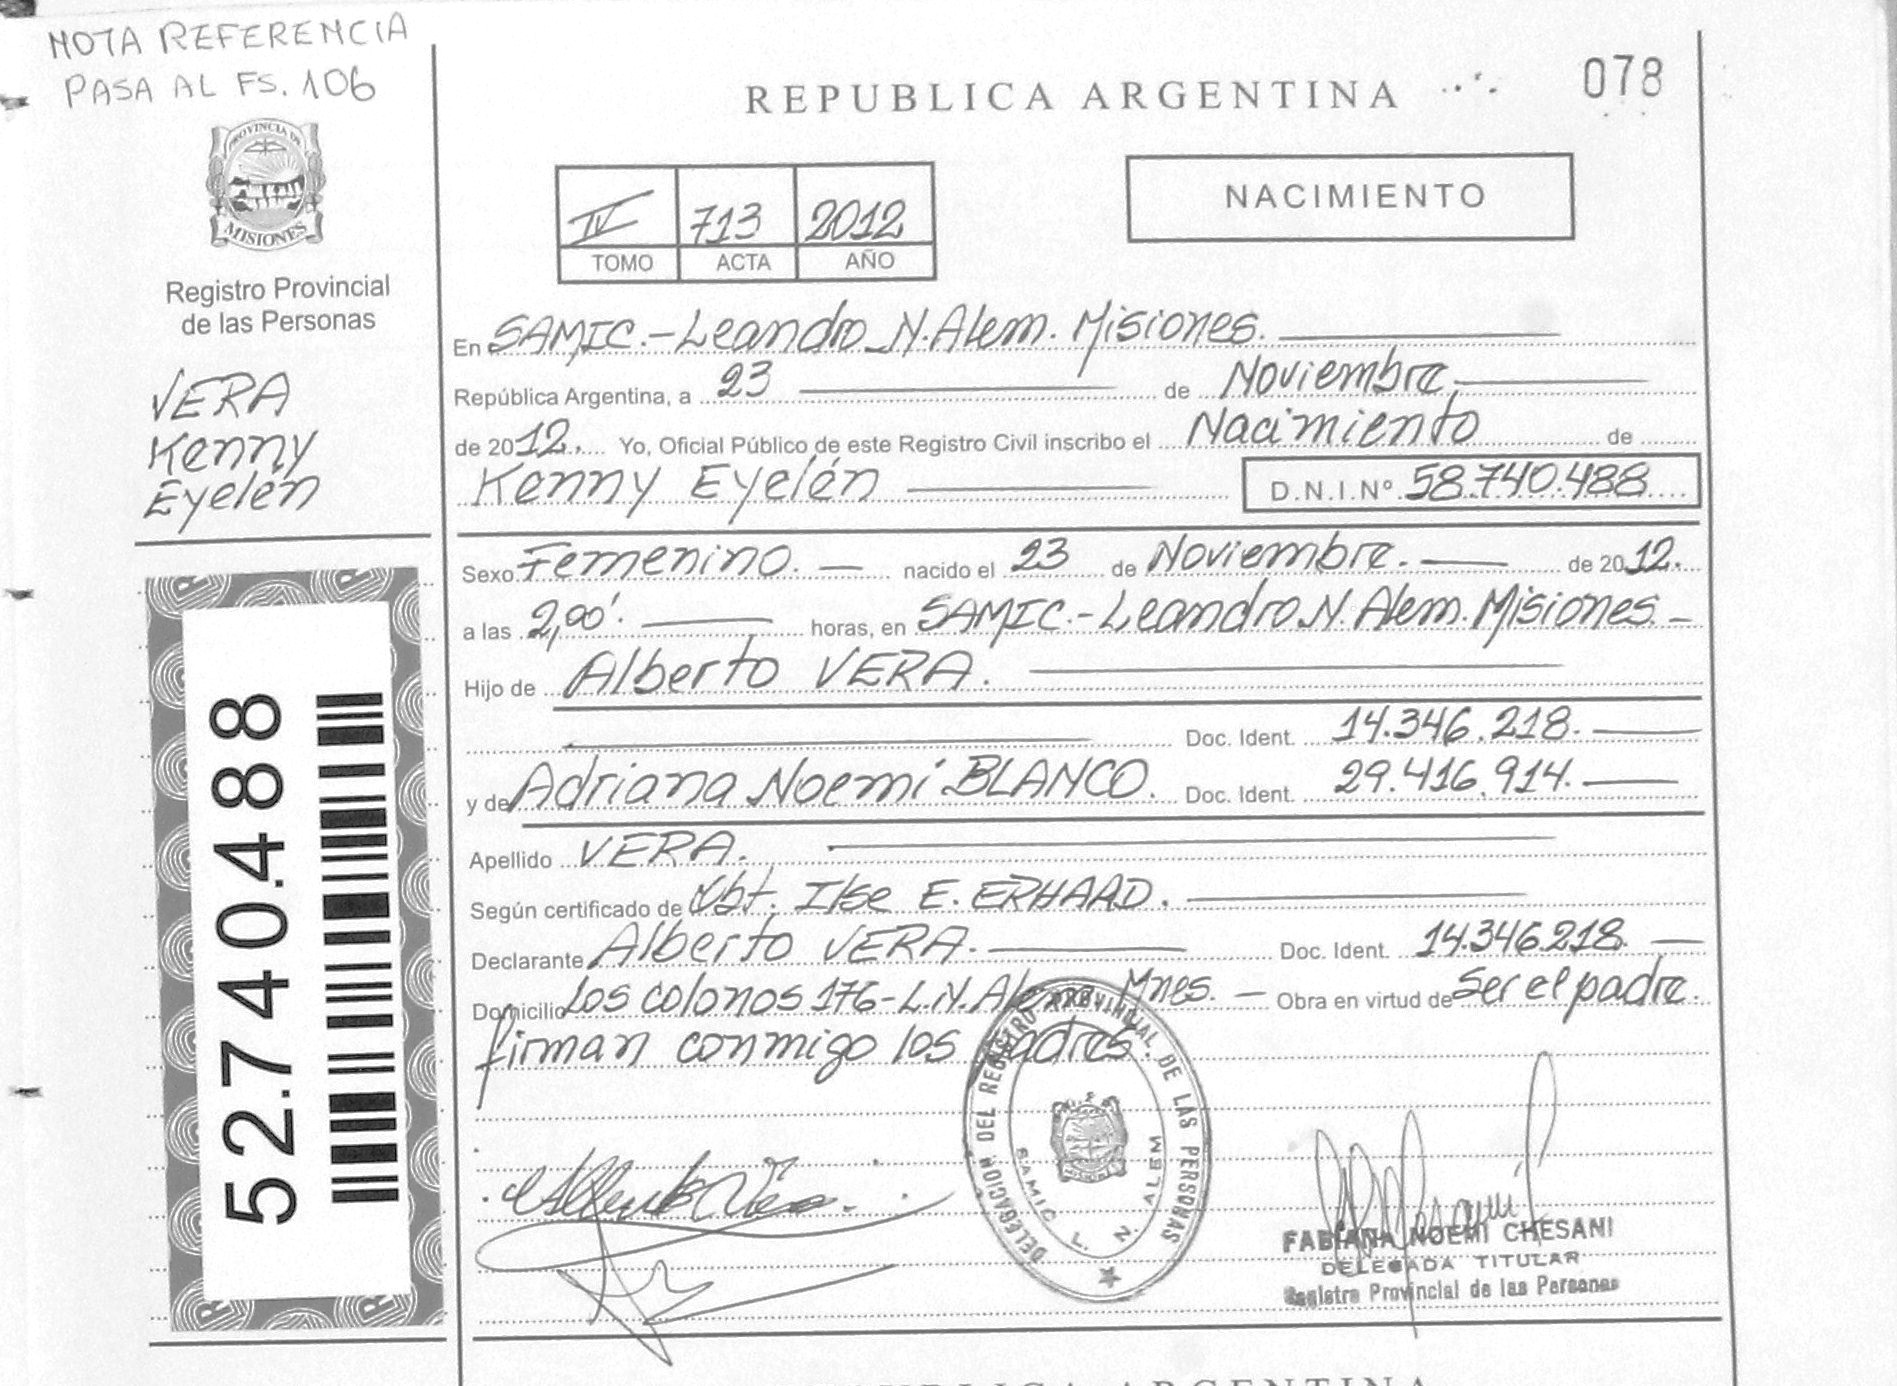 NOTA REFERENCIA
PASA AL FS. 106
PROVINCIA DE
MISIONES
Registro Provincial
de las Personas
VERA
Kenny
Eyelén
52.740.488
REPUBLICA ARGENTINA
078
IV 713 2012
TOMO ACTA AÑO
NACIMIENTO
En SAMIC.-Leandro N. Alem. Misiones.
República Argentina, a 23 de Noviembre
de 2012. Yo, Oficial Público de este Registro Civil inscribo el Nacimiento de
Kenny Eyelén D.N.I.Nº 58.740.488
Sexo Femenino. nacido el 23 de Noviembre. de 2012.
a las 2,00'. horas, en SAMIC.-Leandro N. Alem. Misiones.
Hijo de Alberto VERA.
Doc. Ident. 14.346.218.
y de Adriana Noemí BLANCO. Doc. Ident. 29.416.914.
Apellido VERA.
Según certificado de Obt. Ilse E. ERHARD.
Declarante Alberto VERA. Doc. Ident. 14.346.218.
Domicilio Los colonos 176-L.N. Alem Mnes. Obra en virtud de Ser el padre.
firman conmigo los padres.
DELEGACION DEL REGISTRO PROVINCIAL DE LAS PERSONAS
SAMIC L. N. ALEM
FABIANA NOEMI CHESANI
DELEGADA TITULAR
Registro Provincial de las Personas
REPUBLICA ARGENTINA